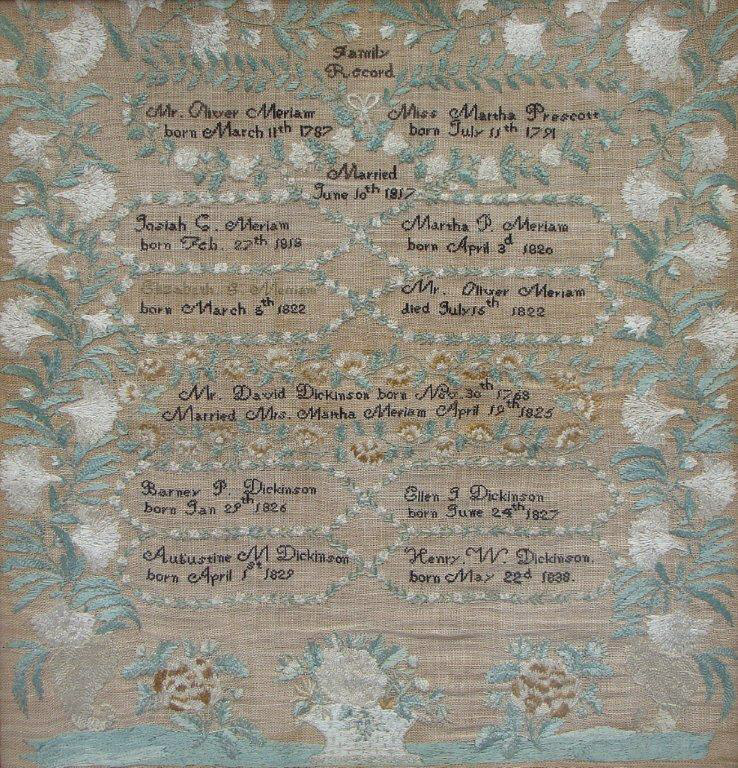 Family
Record
Mr. Oliver Meriam
born March 11th 1787
Miss Martha Prescott
born July 11th 1791
Married
June 10th 1817
Josiah C. Meriam
born Feb. 27th 1818
Martha P. Meriam
born April 3d 1820
Elizabeth Meriam
born March 8th 1822
Mr. Oliver Meriam
died July 15th 1822
Mr. David Dickinson born Nov. 30th 1768
Married Mrs. Martha Meriam April 19th 1825
Barney P. Dickinson
born Jan 29th 1826
Ellen J Dickinson
born June 24th 1827
Augustine M Dickinson
born April 1st 1829
Henry W. Dickinson.
born May 22d 1838.